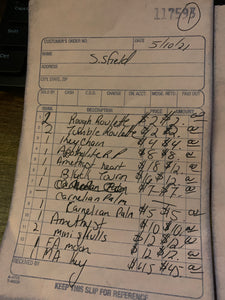 117595
CUSTOMER'S ORDER NO.
DATE 5/10/21
NAME S.Sfield
ADDRESS
CITY, STATE, ZIP
SOLD BY CASH C.O.D. CHARGE ON. ACCT. MDSE. RETD. PAID OUT
QUAN. DESCRIPTION PRICE AMOUNT
2 Rough Roulette $2 $2
2 Tumble Roulette $2 $2
1 Key Chain $4 $4
1 $8 $8
1 Amethyst heart $12 $12
1 Black Tourm $6 $6
$7 $7
Carnelian Palm
1 Carnelian Palm $15 $15
1 Amethyst $10 $10
2 mini skulls $12 $12
1 FA moon $12 $12
1 MA key $45 $45
RECEIVED BY
KEEP THIS SLIP FOR REFERENCE